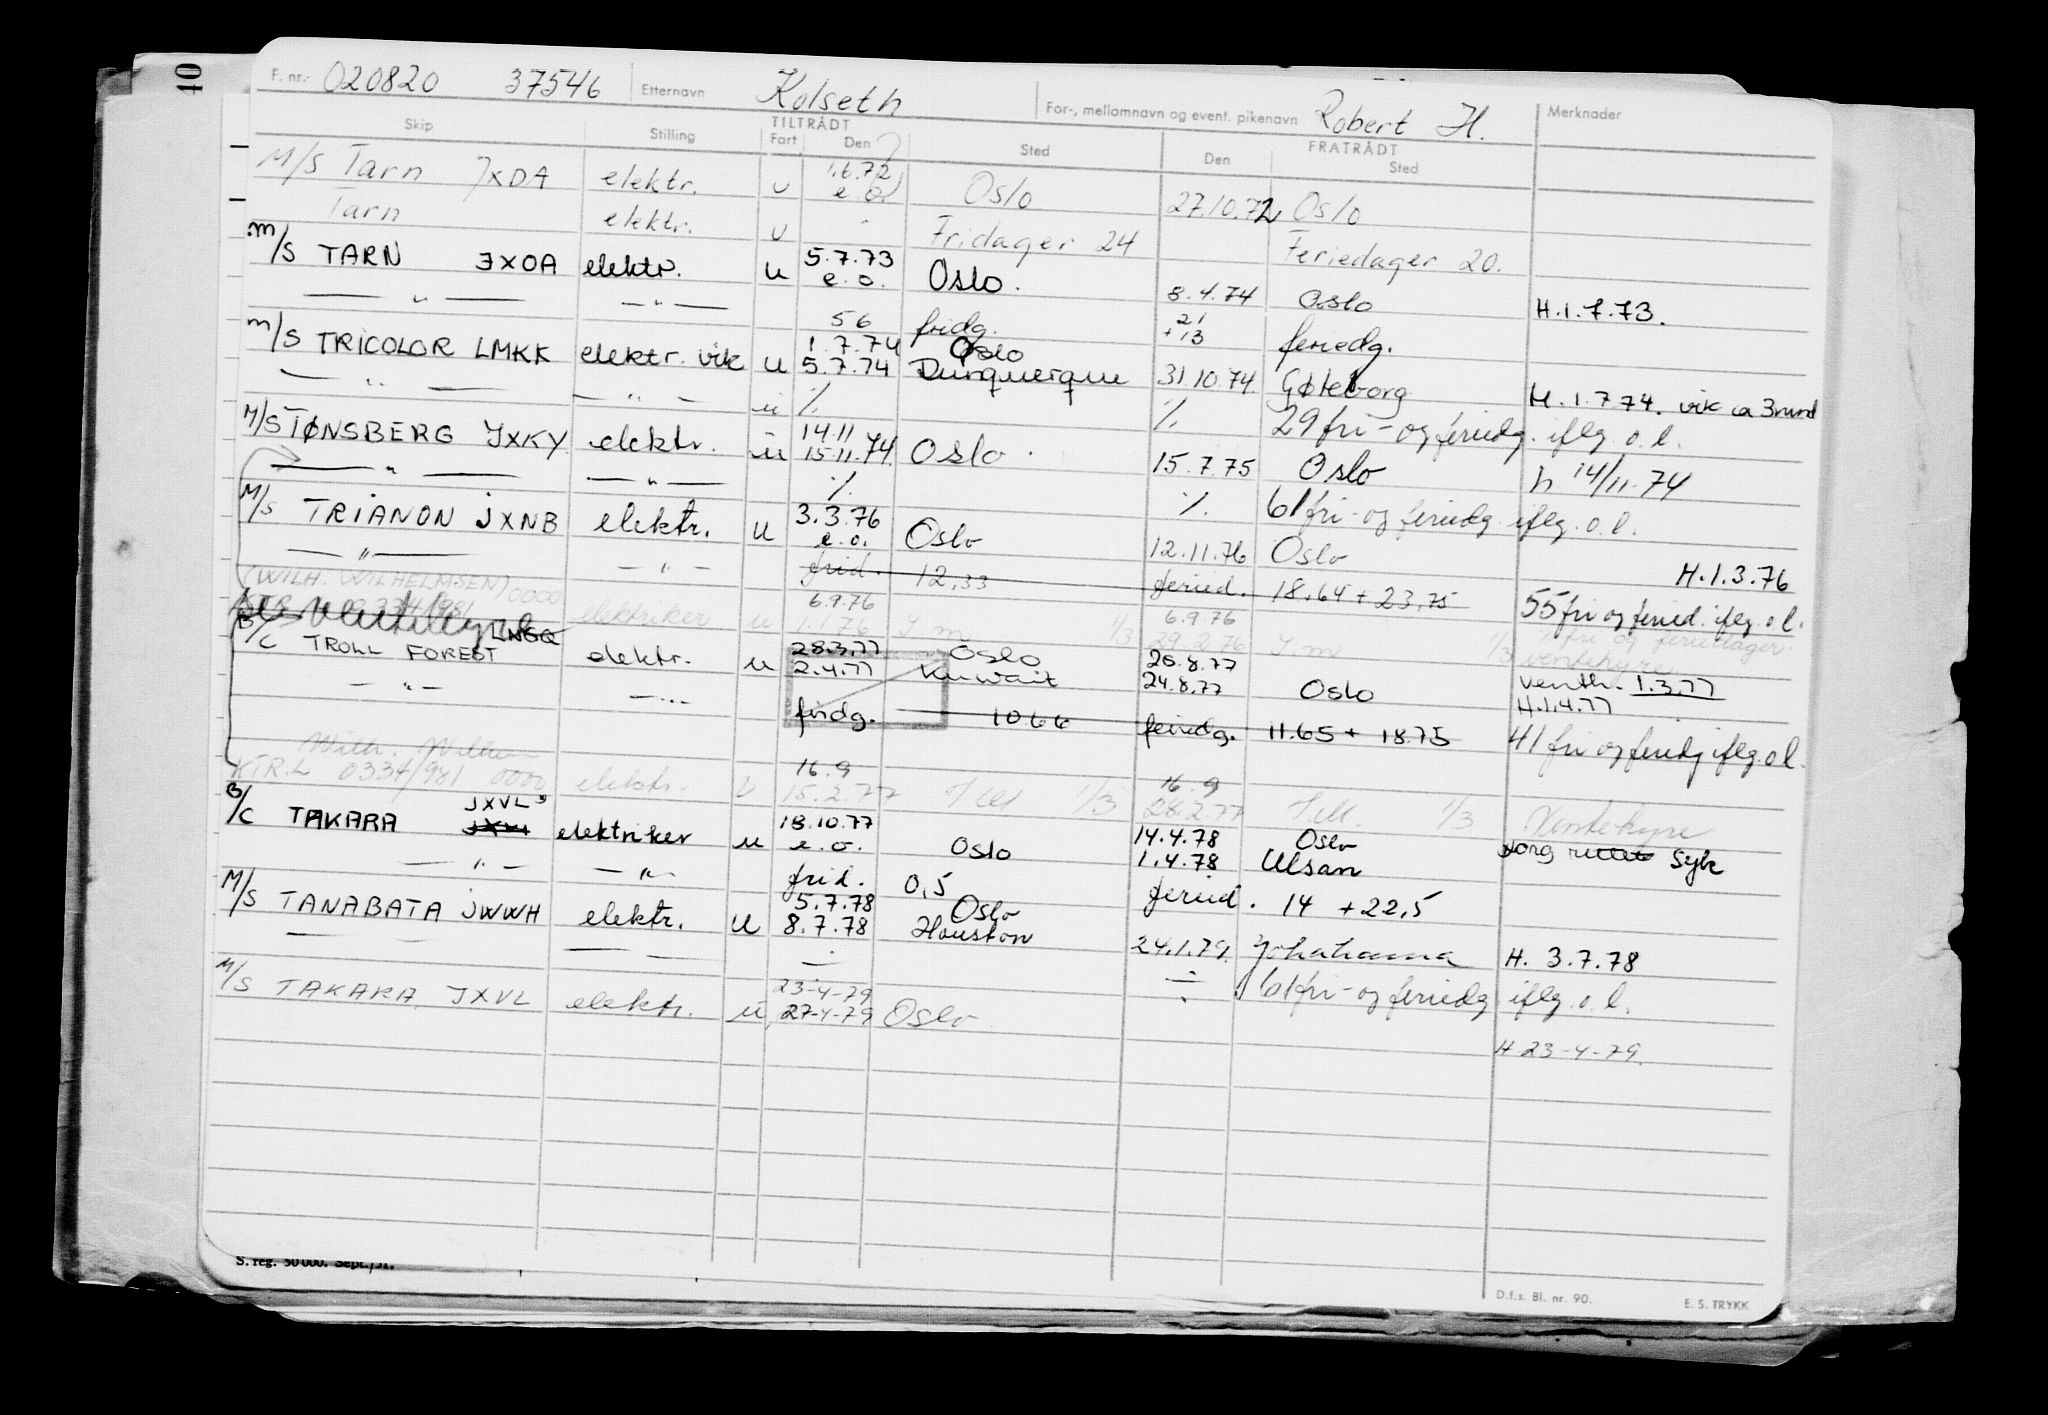 F. nr. 020820 37546 Etternavn Kolseth For-, mellomnavn og event. pikenavn Robert H. Merknader
Skip Stilling TILTRÅDT Fart Den Sted FRATRÅDT Den Sted
M/S Tarn JXDA elektr. u 1.6.72 e.o. Oslo 27.10.72 Oslo
Tarn elektr. u Fridager 24 Feriedager 20.
M/S TARN JXOA elektr. u 5.7.73 e.o. Oslo. 8.4.74 Oslo H.1.7.73.
— " — — " — 56 fridg. 21 + 13 feriedg.
M/S TRICOLOR LMKK elektr. vik u 1.7.74 Oslo
5.7.74 Dunquerque 31.10.74 Gøteborg H.1.7.74. vik ca 3mnd
— " — — " — u ·/. ·/. 29 fri- og feriedg. iflg. o.l.
M/S TØNSBERG JXKY elektr. u 14.11
15.11.74 Oslo 15.7.75 Oslo h 14/11.74
— " — — " — ·/. ·/. 61 fri- og feriedg. iflg. o.l.
M/S TRIANON JXNB elektr. u 3.3.76 e.o. Oslo 12.11.76 Oslo H.1.3.76
— " — — " — frid. 12,33 feried. 18,64 + 23,75 55 fri og feried. iflg. o.l.
(WILH. WILHELMSEN) 0000
0334/981 elektriker u 6.9.76
1.1.76 I m 1/3 6.9.76
29.2.76 I m 1/3 fri og feriedager ventehyre
B/C TROLL FOREST LNGQ elektr. u 28.3.77 Oslo 26.8.77 venth. 1.3.77
2.4.77 Kuwait 24.8.77 Oslo H.1.4.77
— " — — " — fridg. 10 66 feriedg. 11.65 + 18.75 41 fri og feriedg iflg. o.l.
Wilh. Wilh
KTR.L 0334/981 0000 elektr. u 16.9
15.2.77 1/3 16.9
28.2.77 1/3 Ventehyre
B/C TAKARA JXVL elektriker u 18.10.77 e.o. Oslo 14.4.78 Oslo
1.4.78 Ulsan syk
— " — — " — frid. 0,5 feried. 14 + 22,5
M/S TANABATA JWWH elektr. u 5.7.78 Oslo
8.7.78 Houston 24.1.79. Yokohama H. 3.7.78
61 fri- og feriedg iflg. o.l.
M/S TAKARA JXVL elektr. u 23-4-79
27-4-79 Oslo H 23-4-79.
S. reg. 50 000. Sept./51.
D.f.s. Bl. nr. 90. E. S. TRYKK
40